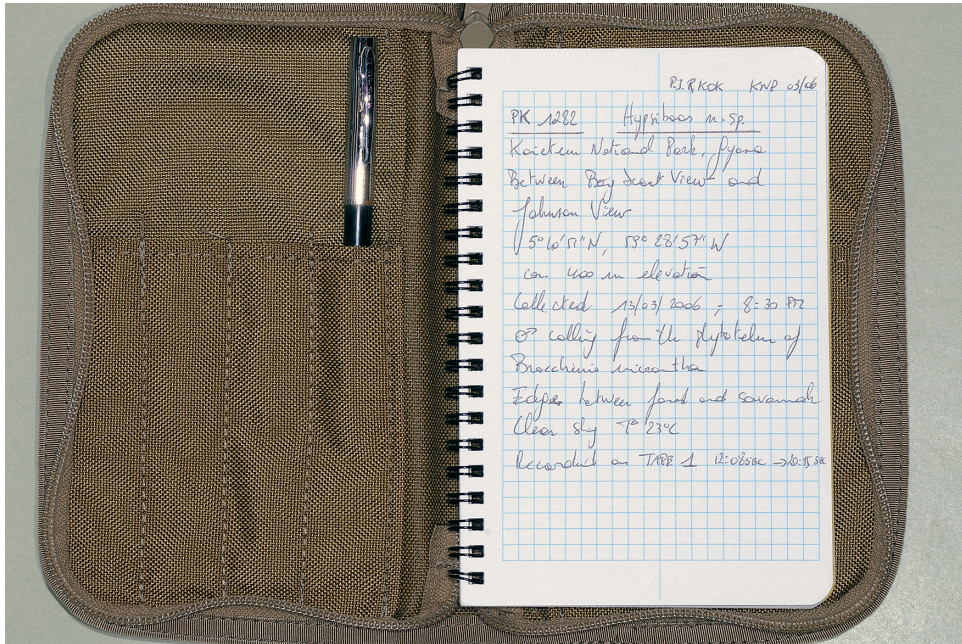 P.J.R. KOK KNP 03/06
PK 1282 Hypsiboas n. sp.
Kaieteur National Park, Guyana
Between Boy Scout View and
Johnson View
5° 10' 51" N, 59° 28' 57" W
ca. 400 m elevation
Collected 13/03/2006 ; 8:30 PM
♂ calling from the phytotelm of
Brocchinia micrantha
Edges between forest and savannah
Clear sky T° 23°C
Recorded on TAPE 1 12:08sec → 20:15sec